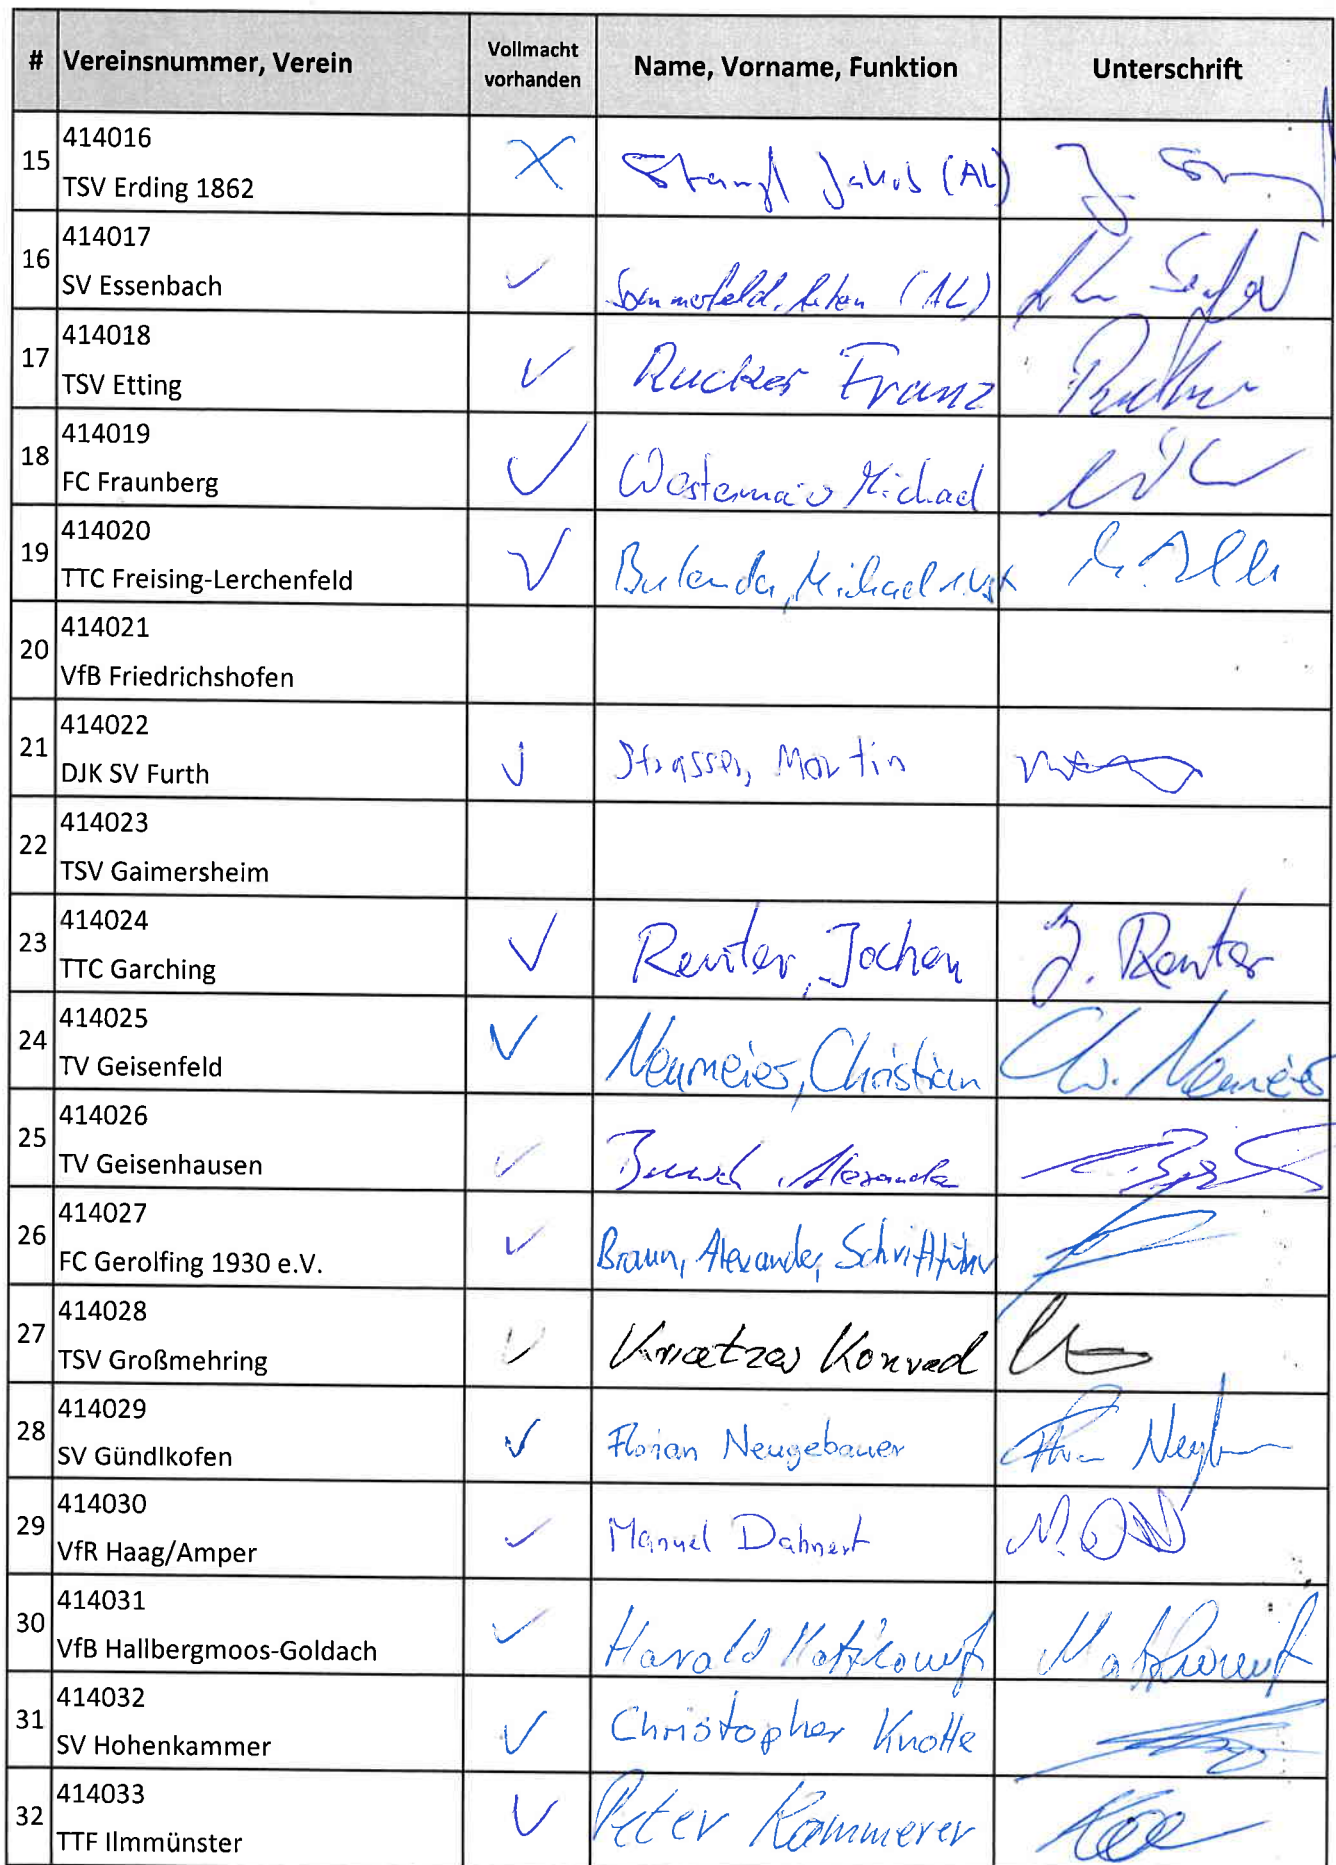 # Vereinsnummer, Verein Vollmacht vorhanden Name, Vorname, Funktion Unterschrift
15 414016 TSV Erding 1862 Stangl Jakob (AL)
16 414017 SV Essenbach Sommerfeld, (AL)
17 414018 TSV Etting Rucker Franz
18 414019 FC Fraunberg Westermair Michael
19 414020 TTC Freising-Lerchenfeld Bulanda, Michael
20 414021 VfB Friedrichshofen
21 414022 DJK SV Furth Strasser, Martin
22 414023 TSV Gaimersheim
23 414024 TTC Garching Reuter, Jochen J. Reuter
24 414025 TV Geisenfeld Neumeier, Christian Ch. Neumeier
25 414026 TV Geisenhausen Alexander
26 414027 FC Gerolfing 1930 e.V. Braun, Alexander, Schriftführer
27 414028 TSV Großmehring Konrad
28 414029 SV Gündlkofen Florian Neugebauer
29 414030 VfR Haag/Amper Manuel Dahnert
30 414031 VfB Hallbergmoos-Goldach Harald
31 414032 SV Hohenkammer Christopher Knotte
32 414033 TTF Ilmmünster Peter Kammerer